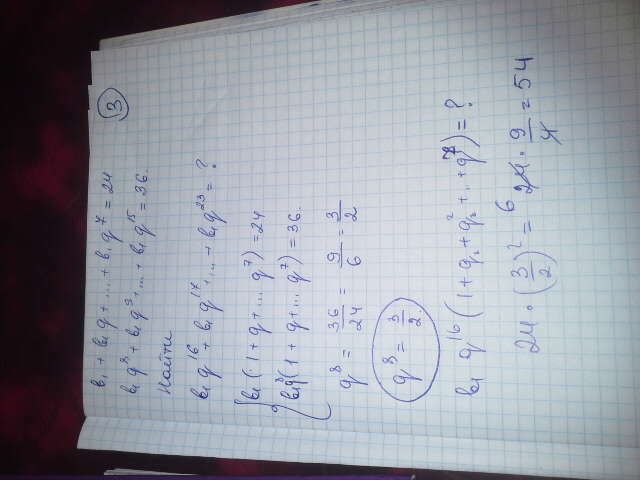 b₁ + b₁q + ... + b₁q⁷ = 24
③
b₁q⁸ + b₁q⁹ + ... + b₁q¹⁵ = 36.
Найти
b₁q¹⁶ + b₁q¹⁷ + ... + b₁q²³ = ?
{ b₁(1 + q + ... q⁷) = 24
b₁q⁸(1 + q + ... q⁷) = 36.
q⁸ = 36/24 = 9/6 = 3/2
q⁸ = 3/2
b₁ q¹⁶ (1 + q + q² + .. + q⁷) = ?
24 · (3/2)² = ⁶24 · 9/4 = 54